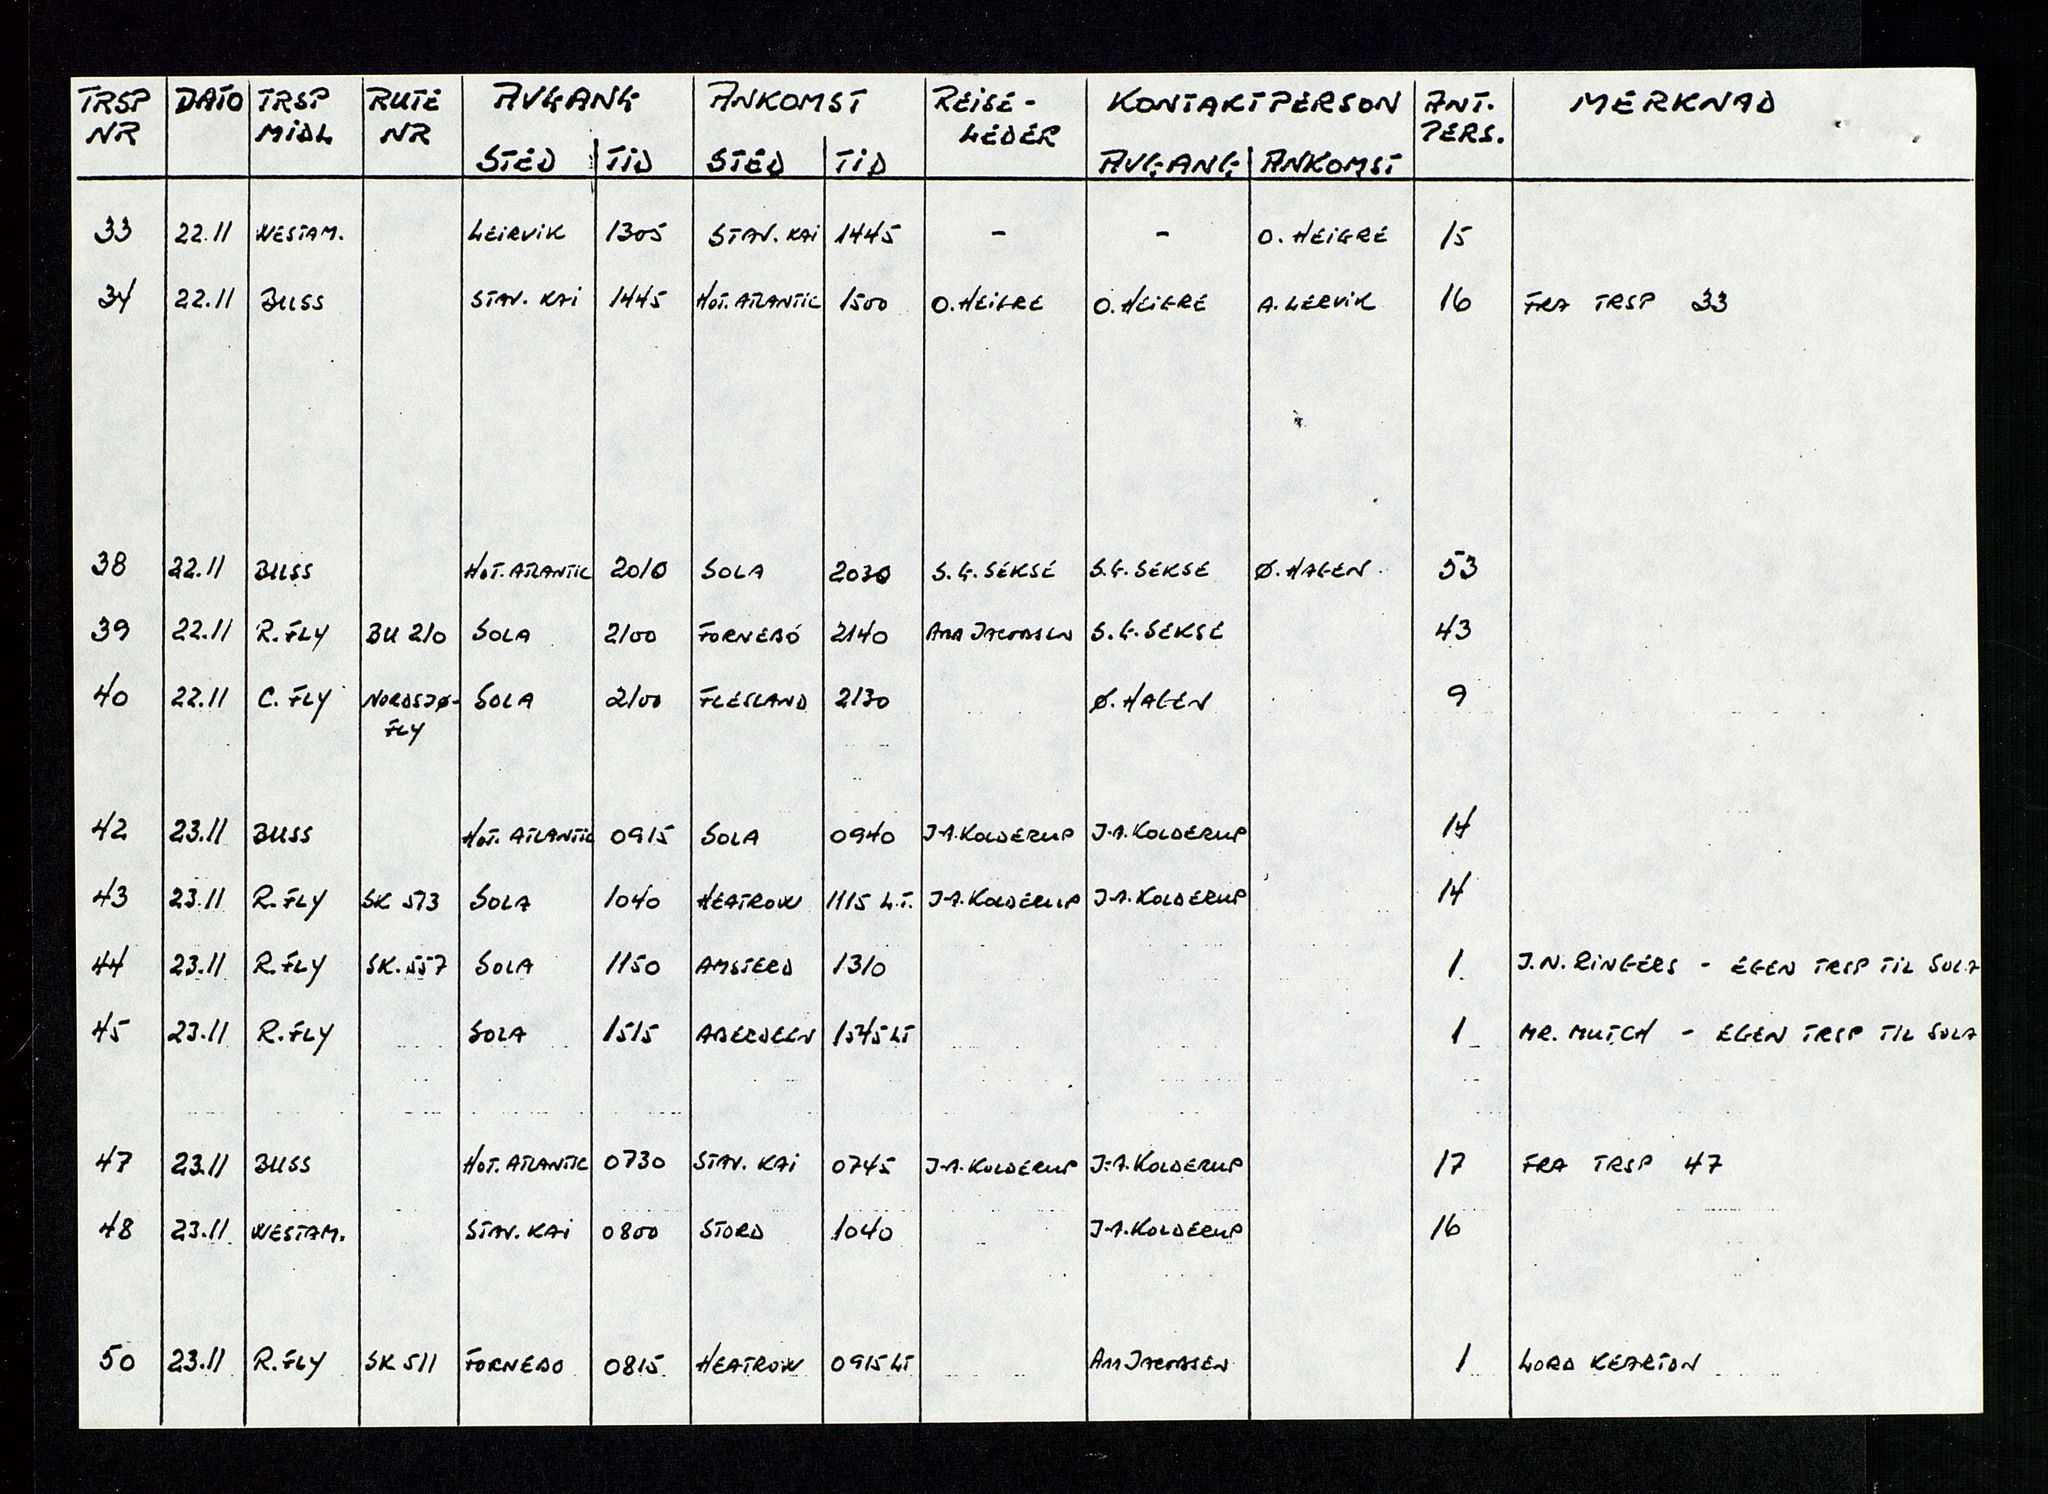 TRSP NR | DATO | TRSP MIDL | RUTE NR | AVGANG STED | AVGANG TID | ANKOMST STED | ANKOMST TID | REISE-LEDER | KONTAKTPERSON AVGANG | KONTAKTPERSON ANKOMST | ANT. PERS. | MERKNAD
33 | 22.11 | WESTAM. | | LEIRVIK | 1305 | STAV. KAI | 1445 | - | - | O. HEIGRE | 15 |
34 | 22.11 | BUSS | | STAV. KAI | 1445 | HOT. ATLANTIC | 1500 | O. HEIGRE | O. HEIGRE | A. LERVIK | 16 | FRA TRSP 33
38 | 22.11 | BUSS | | HOT. ATLANTIC | 2010 | SOLA | 2030 | S.G. SEKSE | S.G. SEKSE | Ø. HAGEN | 53 |
39 | 22.11 | R. FLY | BU 210 | SOLA | 2100 | FORNEBO | 2140 | JACOBSEN | S.G. SEKSE | | 43 |
40 | 22.11 | C. FLY | NORDSJØ-FLY | SOLA | 2100 | FLESLAND | 2130 | | Ø. HAGEN | | 9 |
42 | 23.11 | BUSS | | HOT. ATLANTIC | 0915 | SOLA | 0940 | J-A. KOLDERUP | J-A. KOLDERUP | | 14 |
43 | 23.11 | R. FLY | SK 513 | SOLA | 1040 | HEATROW | 1115 L.T. | J-A. KOLDERUP | J-A. KOLDERUP | | 14 |
44 | 23.11 | R. FLY | SK. 557 | SOLA | 1150 | AMSTERD | 1310 | | | | 1 | J.N. RINGERS - EGEN TRSP TIL SOLA
45 | 23.11 | R. FLY | | SOLA | 1515 | ABERDEEN | 1545 LT | | | | 1 | MR. MUTCH - EGEN TRSP TIL SOLA
47 | 23.11 | BUSS | | HOT. ATLANTIC | 0730 | STAV. KAI | 0745 | J-A. KOLDERUP | J-A. KOLDERUP | | 17 | FRA TRSP 47
48 | 23.11 | WESTAM. | | STAV. KAI | 0800 | STORD | 1040 | | J-A. KOLDERUP | | 16 |
50 | 23.11 | R. FLY | SK 511 | FORNEBO | 0815 | HEATROW | 0915 LT | | JACOBSEN | | 1 | LORD KEARTON